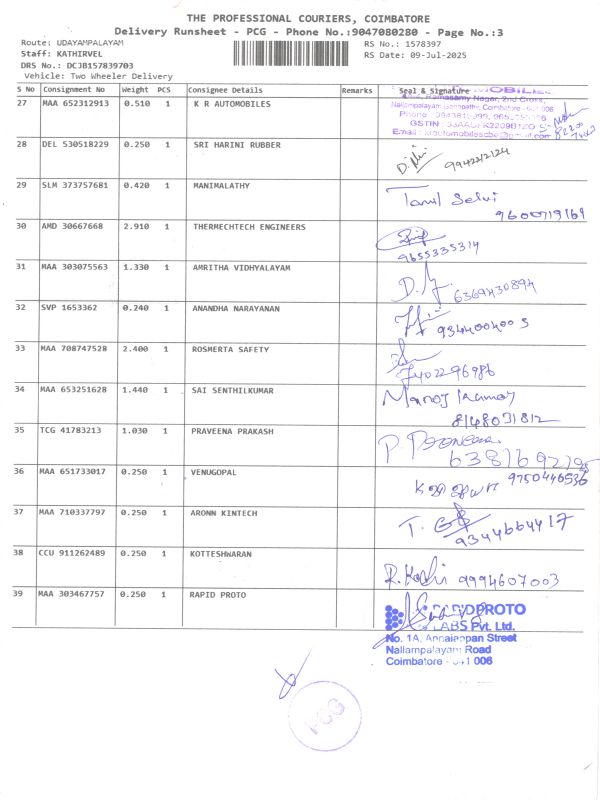 THE PROFESSIONAL COURIERS, COIMBATORE
Delivery Runsheet - PCG - Phone No.:9047080280 - Page No.:3
Route: UDAYAMPALAYAM
Staff: KATHIRVEL
DRS No.: DCJB157839703
Vehicle: Two Wheeler Delivery
RS No.: 1578397
RS Date: 09-Jul-2025
S No Consignment No Weight PCS Consignee Details Remarks Seal & Signature
27 MAA 652312913 0.510 1 K R AUTOMOBILES
Ramasamy Nagar, 2nd Cross,
Nallampalayam, Ganapathy, Coimbatore - 641 006
28 DEL 530518229 0.250 1 SRI HARINI RUBBER
29 SLM 373757681 0.420 1 MANIMALATHY Tamil Selvi
9600719169
30 AMD 30667668 2.910 1 THERMECHTECH ENGINEERS
9655335314
31 MAA 303075563 1.330 1 AMRITHA VIDHYALAYAM
6369430894
32 SVP 1653362 0.240 1 ANANDHA NARAYANAN
33 MAA 708747528 2.400 1 ROSMERTA SAFETY
7402296986
34 MAA 653251628 1.440 1 SAI SENTHILKUMAR Manoj Kumar
8148031812
35 TCG 41783213 1.030 1 PRAVEENA PRAKASH
36 MAA 651733017 0.250 1 VENUGOPAL 9750446536
37 MAA 710337797 0.250 1 ARONN KINTECH
9344664417
38 CCU 911262489 0.250 1 KOTTESHWARAN 9994607003
39 MAA 303467757 0.250 1 RAPID PROTO
RAPIDPROTO
LABS Pvt. Ltd.
No. 1A, Annaiappan Street
Nallampalayam Road
Coimbatore - 641 006
PCG